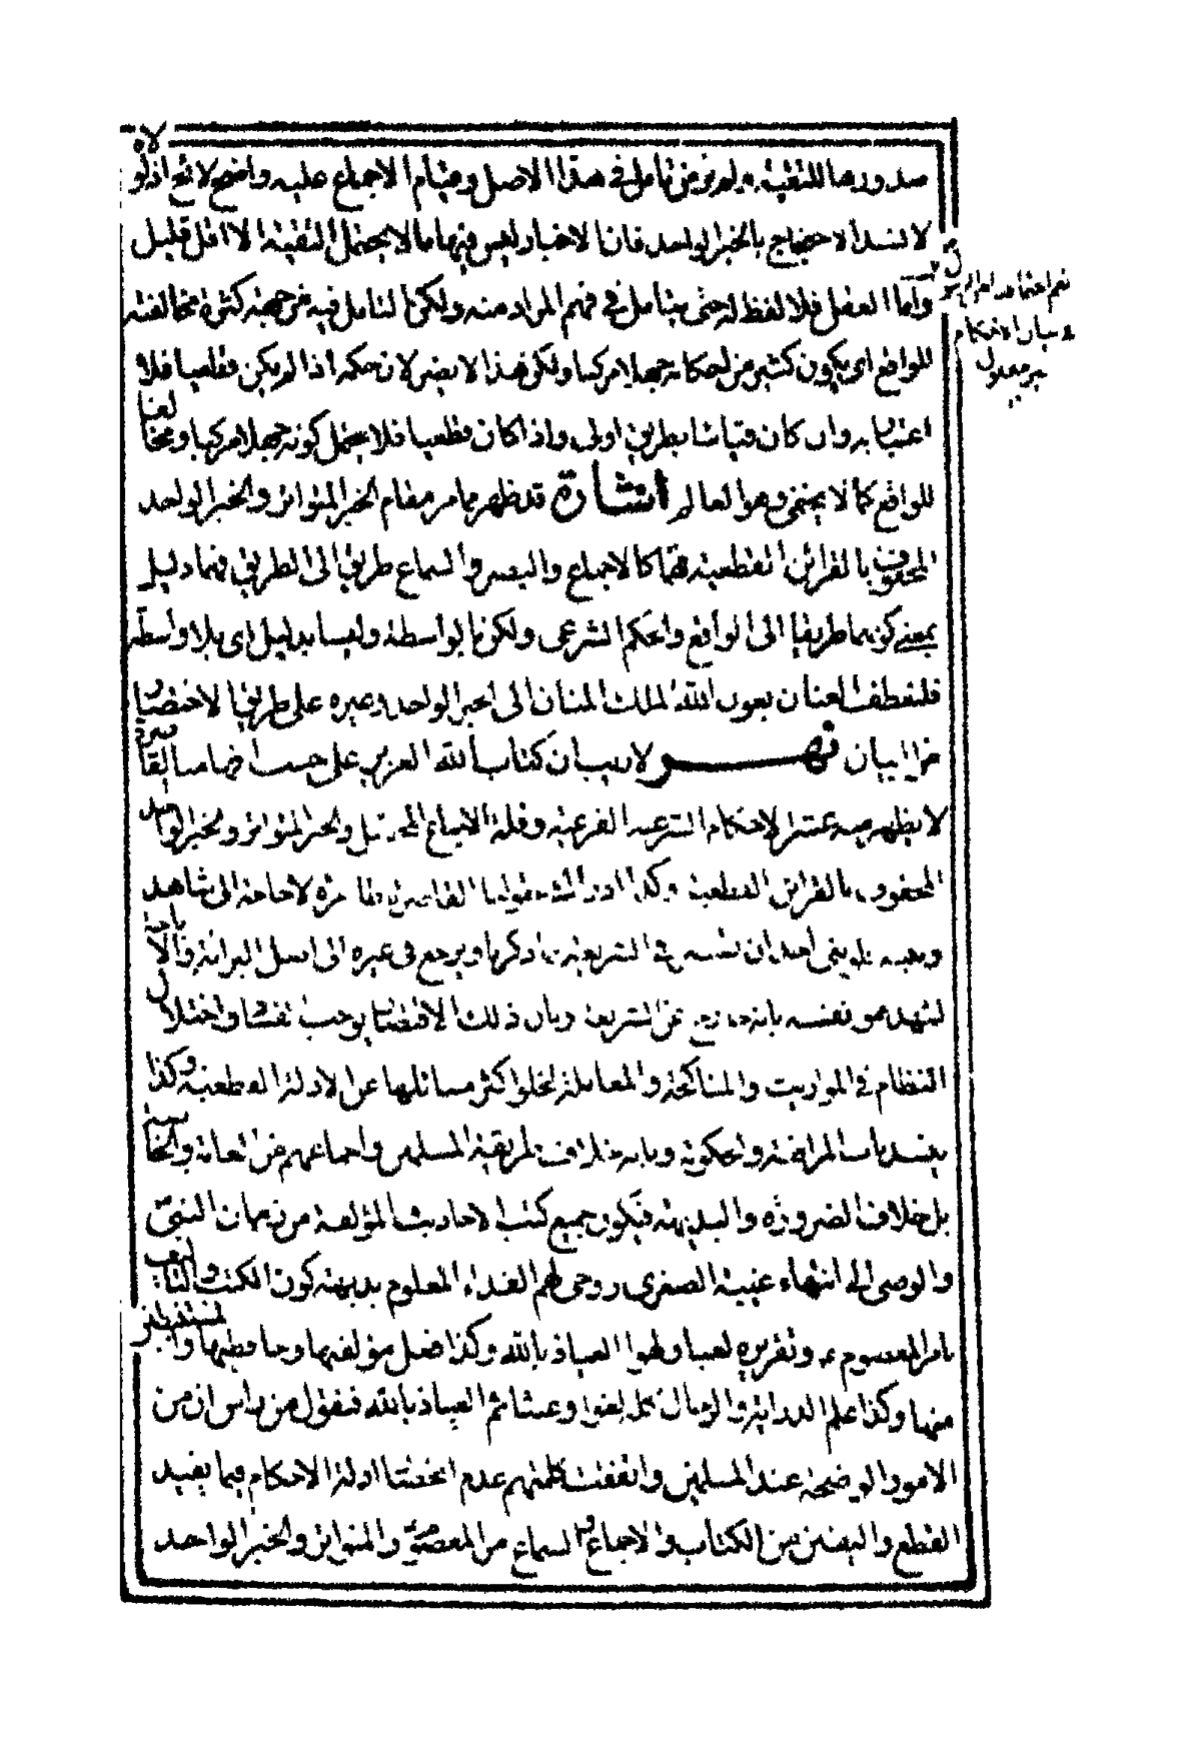 صدورها للتقية ولم نر من تأمل في هذا الاصل وقيام الاجماع عليه واضح لائح اذ لولاه
لانسد الاحتجاج بالخبر الواحد فان الاخبار ليس فيها ما لا يحتمل التقية الا اقل قليل
واما العقل فلا لفظ له حتى يتامل في فهم المراد منه ولكن التامل فيه من جهة كثرة مخالفته
للواقع اى يكون كثير من احكامه جهلا مركبا ولكن هذا لا يضر لان حكمه اذا لم يكن قطعيا فلا
اعتناء به وان كان قياسا بطريق اولى واذا كان قطعيا فلا يحتمل كونه جهلا مركبا ومخالفا
للواقع كما لا يخفى وهو العالم اشارة قد ظهر مما مر مقام الخبر المتواتر والخبر الواحد
المحفوف بالقرائن القطعية فهما كالاجماع والبصر والسماع طريق الى الطريق فهما دليل
بمعنى كونهما طريقا الى الواقع والحكم الشرعى ولكن بالواسطة وليسا بدليل اى بلا واسطة
فلنعطف العنان بعون الله الملك المنان الى الخبر الواحد وغيره على طريق الاختصار
من البيان نهر لا ريب ان كتاب الله العزيز على حسب افهامنا القاصرة
لا يظهر منه عشر الاحكام الشرعية الفرعية وقلة الاجماع المحصل والخبر المتواتر والخبر الواحد
المحفوف بالقرائن القطعية وكذا ادراك عقولنا القاصرة ظاهرة لا حاجة الى شاهد
وبينة فلو بنى احد ان نفسه في الشريعة بما ذكر ويرجع في غيره الى اصل البرائة والاباحة
لشهد هو نفسه بانه خارج عن الشريعة وبان ذلك الاقتصار يوجب نقصا واختلال
النظام في المواريث والمناكحة والمعاملة لخلو اكثر مسائلها عن الادلة القطعية وكذا
يفسد باب المرافعة والحكومة وبانه خلاف طريقة المسلمين واجماعهم من العامة والخاصة
بل خلاف الضرورة والبديهة فيكون جميع كتب الاحاديث المؤلفة من زمان النبى
والوصى الى انتهاء غيبة الصغرى روحى لهم الفداء المعلوم بديهة كون الكتب والتأليف
بامر المعصوم ع وتقريره لعبا ولهوا العياذ بالله وكذا فعل مؤلفيها وحافظيها والمستنبطين
منها وكذا علم الدراية والرجال كل لغوا وعبثا ثم العياذ بالله فنقول من راس ان من
الامور الواضحة عند المسلمين واتفقت كلمتهم عدم انحصار ادلة الاحكام فيما يفيد
القطع واليقين من الكتاب والاجماع والسماع من المعصوم والمتواتر والخبر الواحد
نعم احتمال